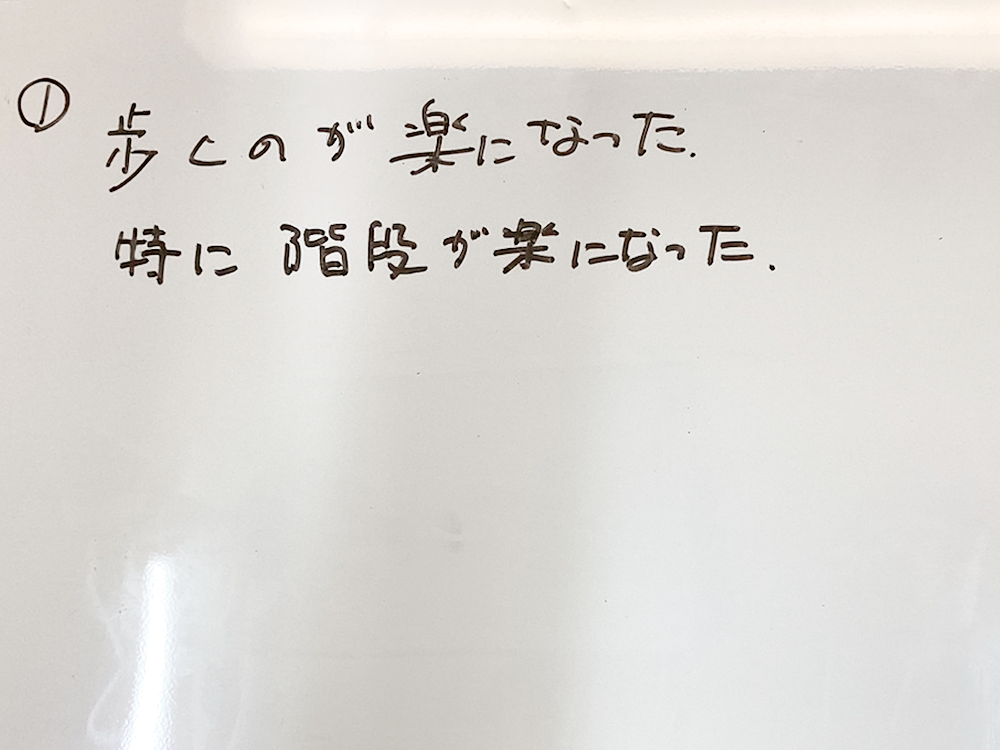 ① 歩くのが楽になった.
特に階段が楽になった.